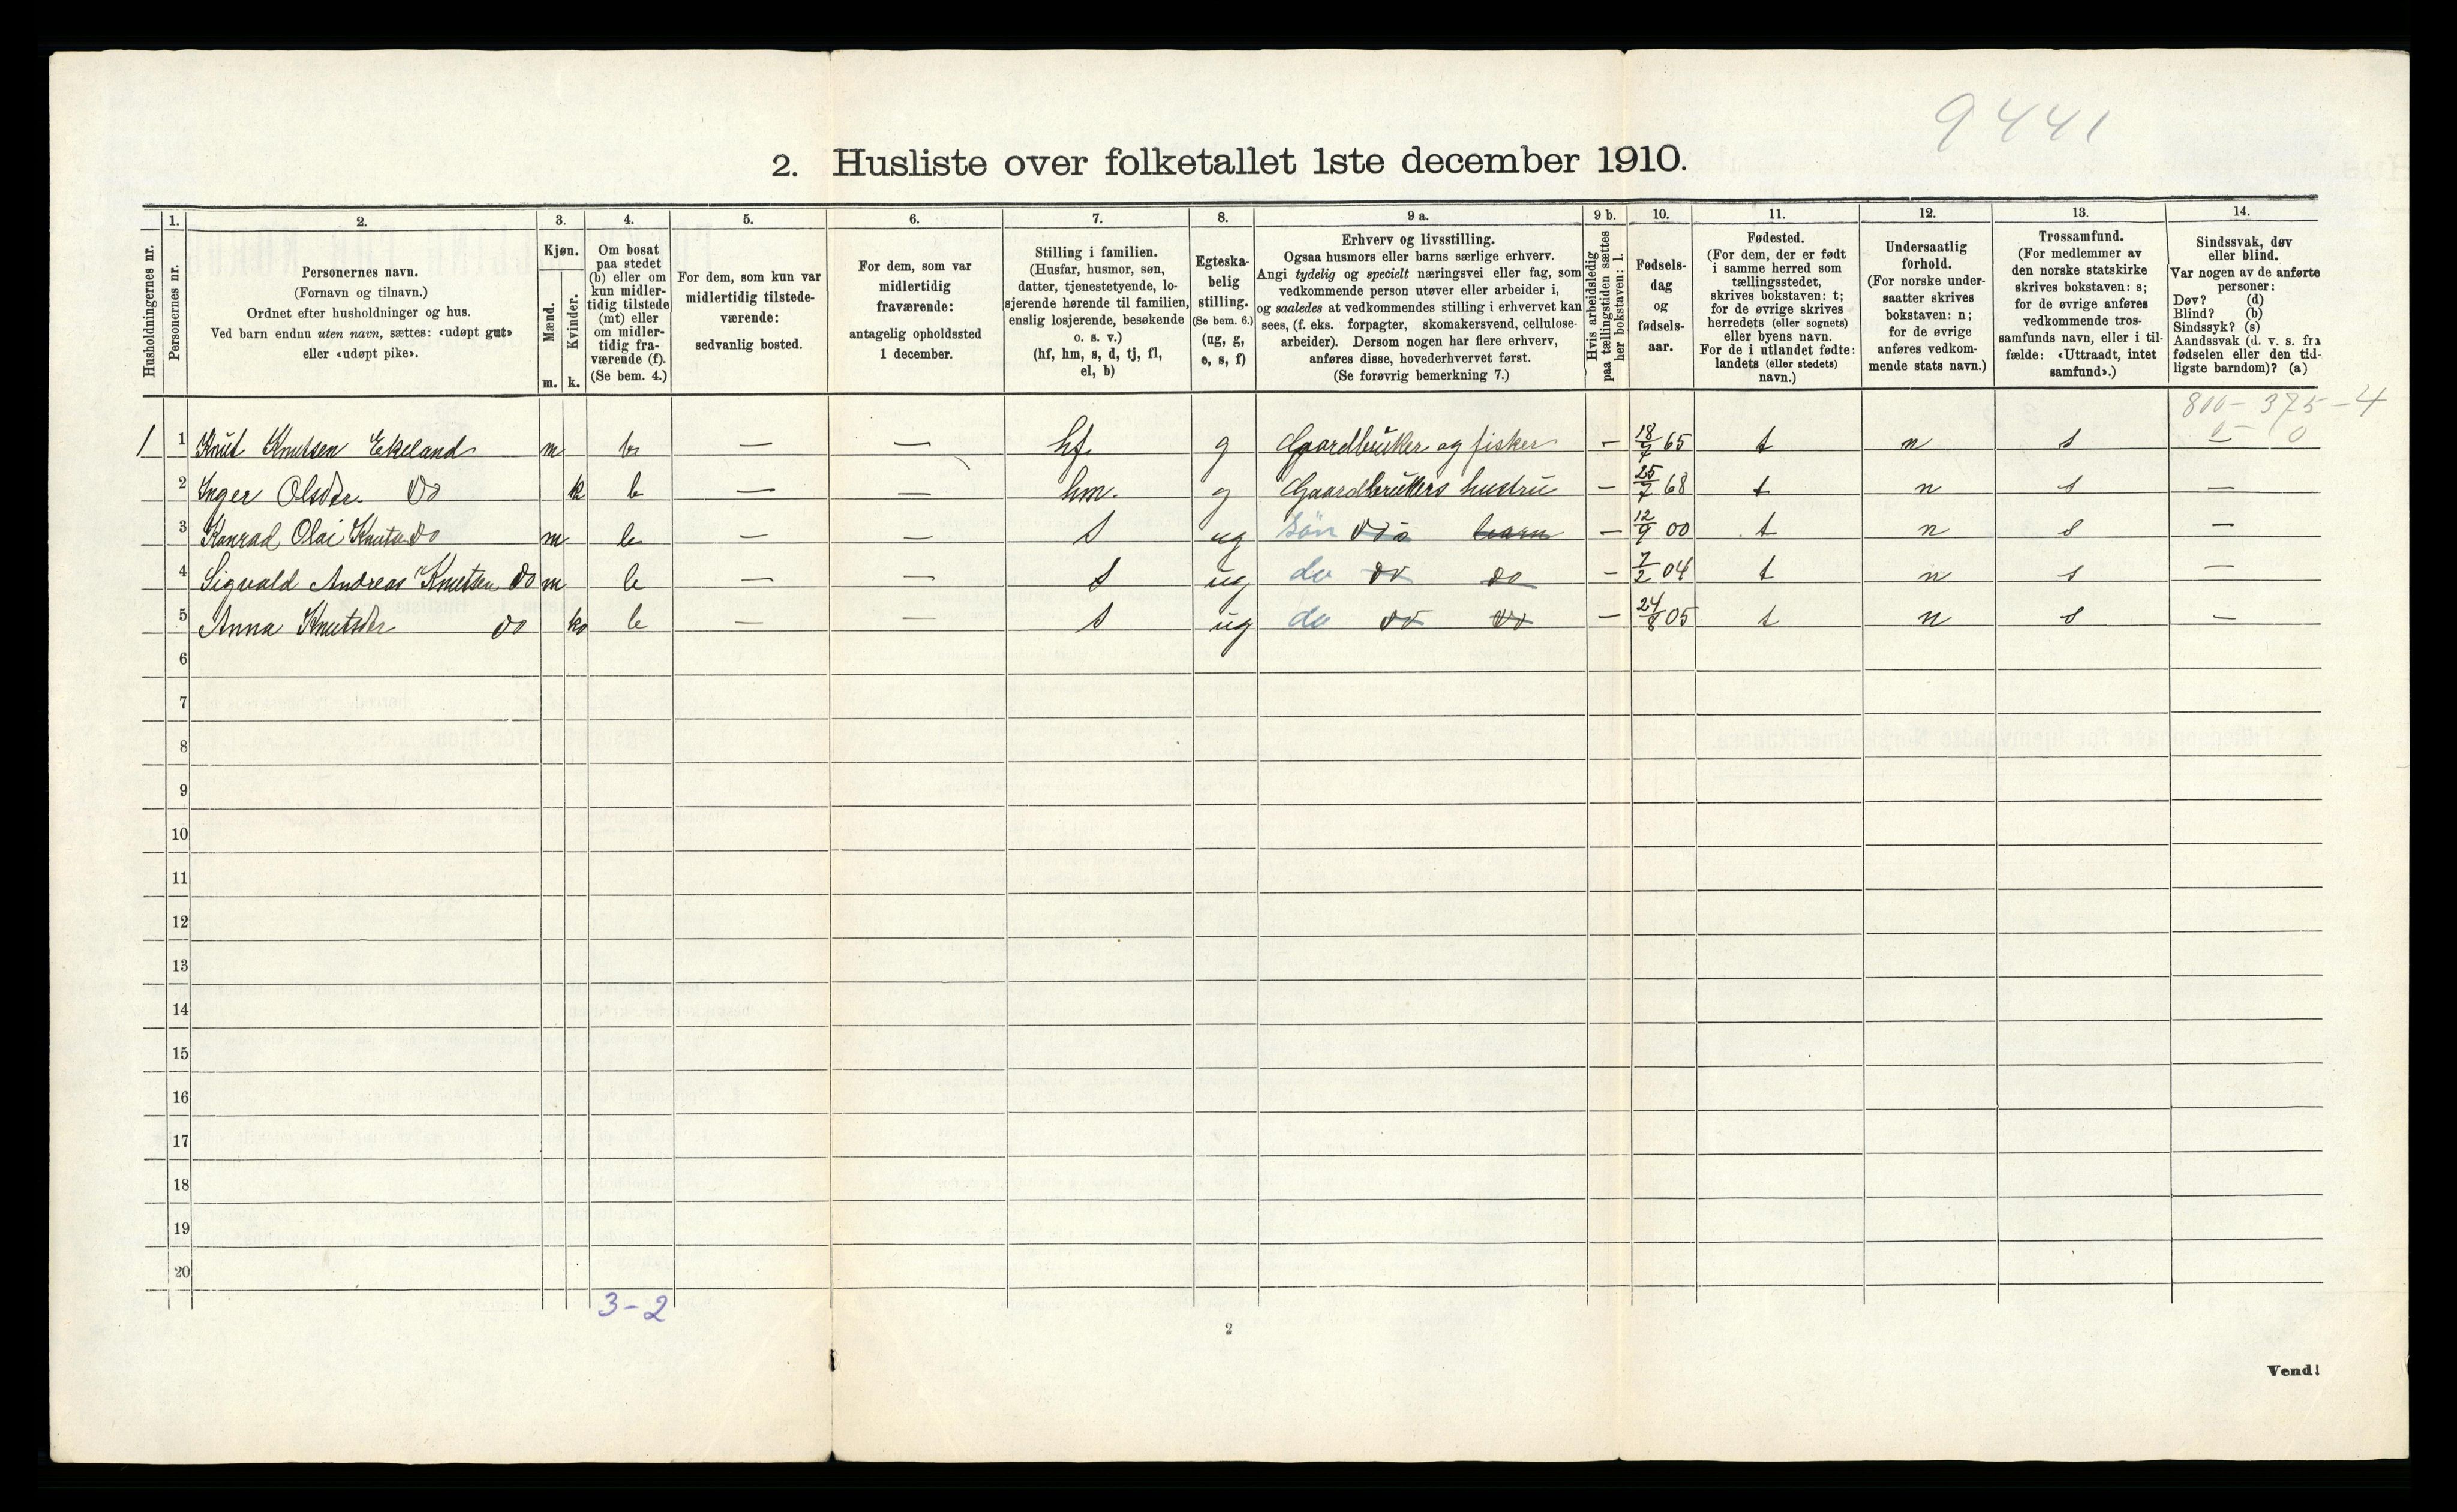 9441
2. Husliste over folketallet 1ste december 1910.
Husholdningernes nr.
1.
Personernes nr.
2.
Personernes navn.
(Fornavn og tilnavn.)
Ordnet efter husholdninger og hus.
Ved barn endnu uten navn, sættes: «udøpt gut»
eller «udøpt pike».
3.
Kjøn.
Mænd.
Kvinder.
m. k.
4.
Om bosat
paa stedet
(b) eller om
kun midler-
tidig tilstede
(mt) eller
om midler-
tidig fra-
værende (f).
(Se bem. 4.)
5.
For dem, som kun var
midlertidig tilstede-
værende:
sedvanlig bosted.
6.
For dem, som var
midlertidig
fraværende:
antagelig opholdssted
1 december.
7.
Stilling i familien.
(Husfar, husmor, søn,
datter, tjenestetyende, lo-
sjerende hørende til familien,
enslig losjerende, besøkende
o. s. v.)
(hf, hm, s, d, tj, fl,
el, b)
8.
Egteska-
belig
stilling.
(Se bem. 6.)
(ug, g,
e, s, f)
9 a.
Erhverv og livsstilling.
Ogsaa husmors eller barns særlige erhverv.
Angi tydelig og specielt næringsvei eller fag, som
vedkommende person utøver eller arbeider i,
og saaledes at vedkommendes stilling i erhvervet kan
sees, (f. eks. forpagter, skomakersvend, cellulose-
arbeider). Dersom nogen har flere erhverv,
anføres disse, hovederhvervet først.
(Se forøvrig bemerkning 7.)
9 b.
Hvis arbeidsledig
paa tællingstiden sættes
her bokstaven: l.
10.
Fødsels-
dag
og
fødsels-
aar.
11.
Fødested.
(For dem, der er født
i samme herred som
tællingsstedet,
skrives bokstaven: t;
for de øvrige skrives
herredets (eller sognets)
eller byens navn.
For de i utlandet fødte:
landets (eller stedets)
navn.)
12.
Undersaatlig
forhold.
(For norske under-
saatter skrives
bokstaven: n;
for de øvrige
anføres vedkom-
mende stats navn.)
13.
Trossamfund.
(For medlemmer av
den norske statskirke
skrives bokstaven: s;
for de øvrige anføres
vedkommende tros-
samfunds navn, eller i til-
fælde: «Uttraadt, intet
samfund».)
14.
Sindssvak, døv
eller blind.
Var nogen av de anførte
personer:
Døv? (d)
Blind? (b)
Sindssyk? (s)
Aandssvak (d. v. s. fra
fødselen eller den tid-
ligste barndom)? (a)
800 - 375 - 4
0 - 0
1 1 Knut Knutsen Ekeland m b — — hf g Gaardbruker og fisker — 18/7 65 t n s
2 Inger Olsdtr. Do k b — — hm. g Gaardbrukers hustru — 25/7 68 t n s —
3 Konrad Olai Knuts Do m b — — s ug søn do barn — 12/9 00 t n s —
4 Sigvald Andreas Knutsen Do m b — — s ug do do do — 7/2 04 t n s —
5 Anna Knutsdtr Do k b — — s ug do do do — 24/8 05 t n s —
6
7
8
9
10
11
12
13
14
15
16
17
18
19
20
3 - 2
2
Vend!